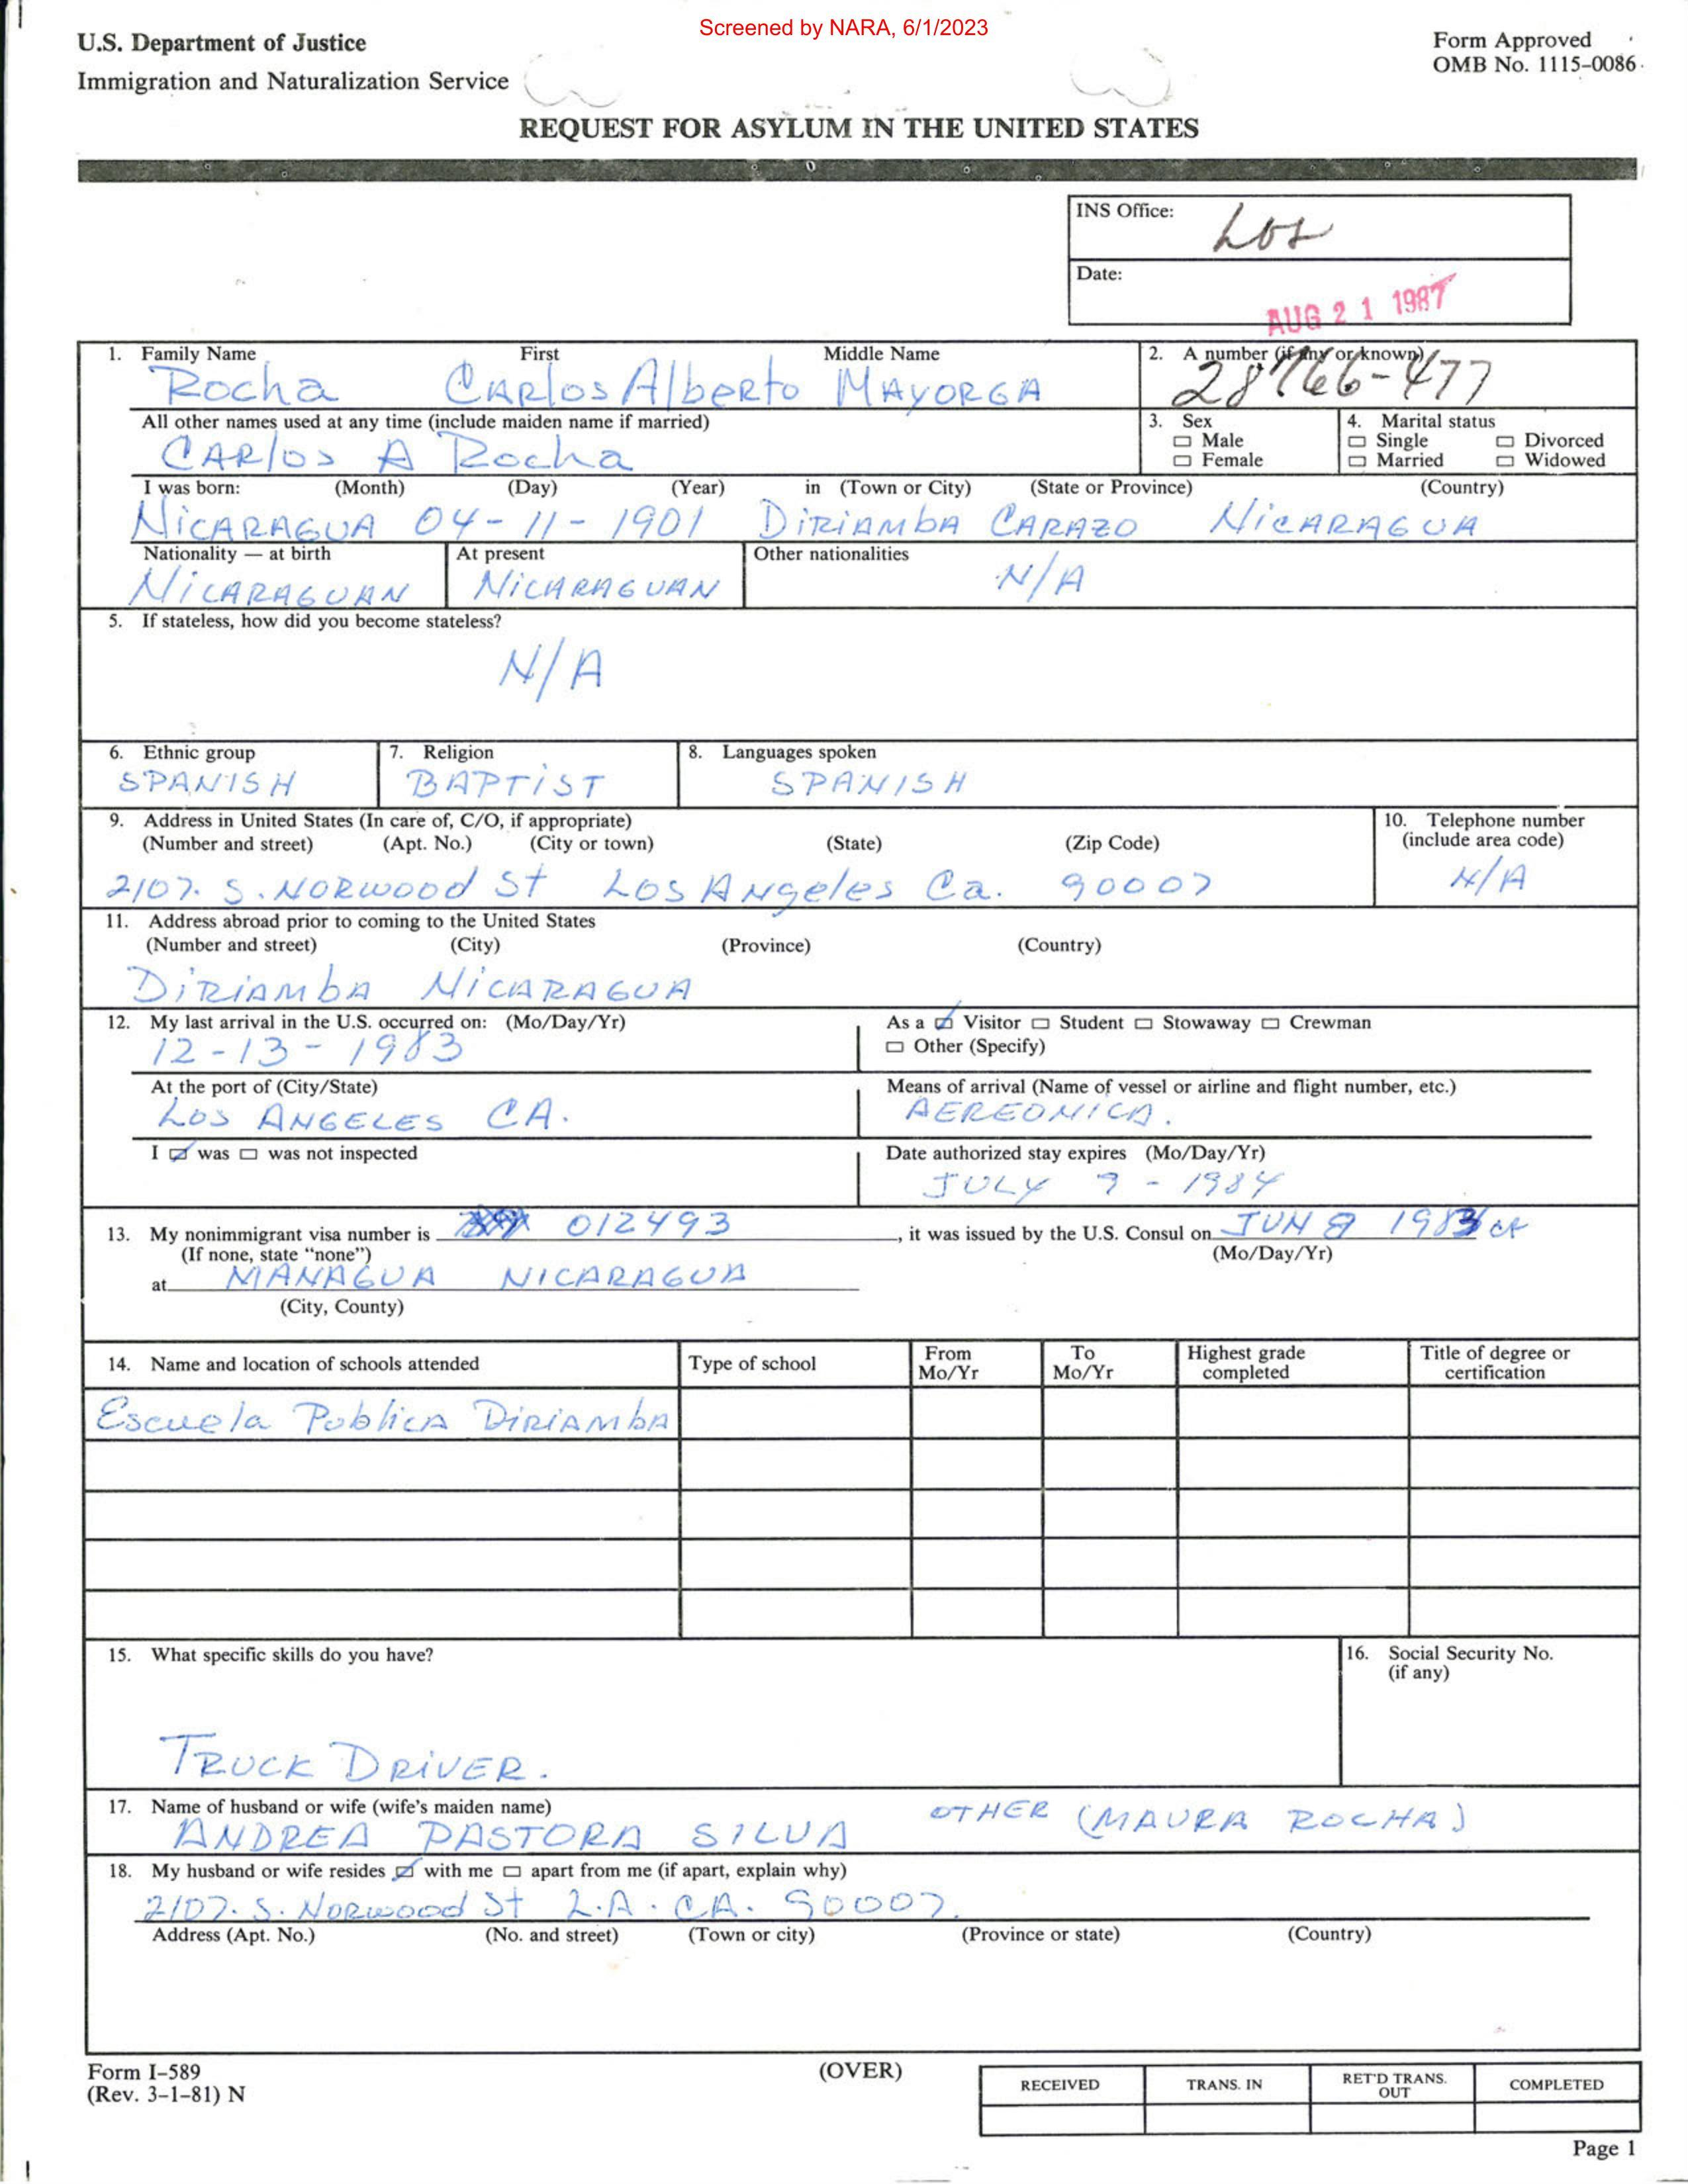 Screened by NARA, 6/1/2023
U.S. Department of Justice
Immigration and Naturalization Service
Form Approved
OMB No. 1115-0086
REQUEST FOR ASYLUM IN THE UNITED STATES
INS Office: LOS
Date: AUG 21 1987
1. Family Name First Middle Name
Rocha CARlos Alberto MAYORGA
2. A number (if any or known)
28766-477
All other names used at any time (include maiden name if married)
CARlos A Rocha
3. Sex
Male
Female
4. Marital status
Single Divorced
Married Widowed
I was born: (Month) (Day) (Year) in (Town or City) (State or Province) (Country)
NiCARAGUA 04-11-1901 DiRiAMbA CARAZO NiCARAGUA
Nationality — at birth At present Other nationalities
NiCARAGUAN NiCARAGUAN N/A
5. If stateless, how did you become stateless?
N/A
6. Ethnic group 7. Religion 8. Languages spoken
SPANISH BAPTiST SPANISH
9. Address in United States (In care of, C/O, if appropriate)
(Number and street) (Apt. No.) (City or town) (State) (Zip Code)
2107. S. NORwood St Los ANgeles Ca. 90007
10. Telephone number
(include area code)
N/A
11. Address abroad prior to coming to the United States
(Number and street) (City) (Province) (Country)
DiRiAMbA NiCARAGUA
12. My last arrival in the U.S. occurred on: (Mo/Day/Yr)
12-13-1983
As a Visitor Student Stowaway Crewman
Other (Specify)
At the port of (City/State)
LOS ANGELES CA.
Means of arrival (Name of vessel or airline and flight number, etc.)
AEREONICA.
I was was not inspected
Date authorized stay expires (Mo/Day/Yr)
JULY 9-1984
13. My nonimmigrant visa number is 012493, it was issued by the U.S. Consul on JUN 8 1983
(If none, state "none") (Mo/Day/Yr)
at MANAGUA NICARAGUA
(City, County)
14. Name and location of schools attended Type of school From Mo/Yr To Mo/Yr Highest grade completed Title of degree or certification
Escuela PublicA DiRiAMbA
15. What specific skills do you have?
TRUCK DRiVER.
16. Social Security No.
(if any)
17. Name of husband or wife (wife's maiden name)
ANDREA PASTORA SILVA OTHER (MAURA ROCHA)
18. My husband or wife resides with me apart from me (if apart, explain why)
2107. S. NORwood St L.A. CA. 90007.
Address (Apt. No.) (No. and street) (Town or city) (Province or state) (Country)
Form I-589
(Rev. 3-1-81) N
(OVER)
RECEIVED TRANS. IN RET'D TRANS. OUT COMPLETED
Page 1